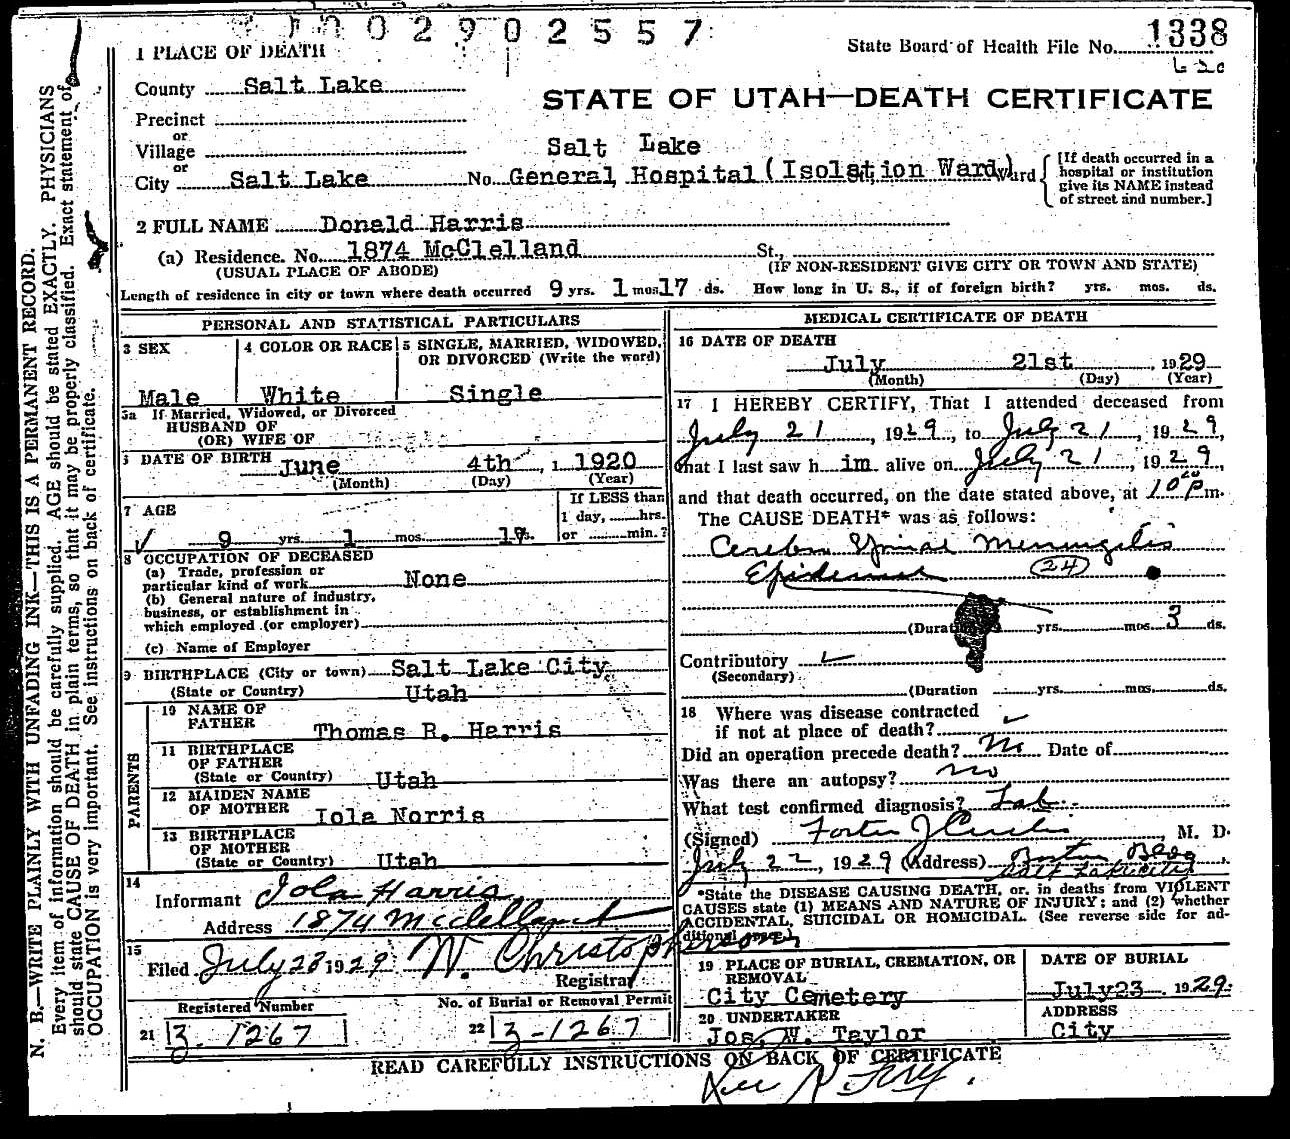 0 2 9 0 2 5 5 7
State Board of Health File No. 1338
1 PLACE OF DEATH
County Salt Lake
STATE OF UTAH—DEATH CERTIFICATE
Precinct
or
Village
or
City Salt Lake No. Salt Lake General Hospital (Isolation Ward) Ward
[If death occurred in a
hospital or institution
give its NAME instead
of street and number.]
2 FULL NAME Donald Harris
(a) Residence. No. 1874 McClelland St.,
(USUAL PLACE OF ABODE) (IF NON-RESIDENT GIVE CITY OR TOWN AND STATE)
Length of residence in city or town where death occurred 9 yrs. 1 mos 17 ds. How long in U. S., if of foreign birth? yrs. mos. ds.
PERSONAL AND STATISTICAL PARTICULARS
3 SEX
Male
4 COLOR OR RACE
White
5 SINGLE, MARRIED, WIDOWED,
OR DIVORCED (Write the word)
Single
5a If Married, Widowed, or Divorced
HUSBAND OF
(OR) WIFE OF
6 DATE OF BIRTH June 4th, 1 1920
(Month) (Day) (Year)
7 AGE
9 yrs. 1 mos. 17 ds.
If LESS than
1 day, hrs.
or min.?
8 OCCUPATION OF DECEASED
(a) Trade, profession or
particular kind of work None
(b) General nature of industry,
business, or establishment in
which employed (or employer)
(c) Name of Employer
9 BIRTHPLACE (City or town) Salt Lake City
(State or Country) Utah
PARENTS
10 NAME OF
FATHER Thomas R. Harris
11 BIRTHPLACE
OF FATHER
(State or Country) Utah
12 MAIDEN NAME
OF MOTHER Iola Norris
13 BIRTHPLACE
OF MOTHER
(State or Country) Utah
14
Informant Iola Harris
Address 1874 McClelland
15
Filed July 23 1929 W. Christopherson
Registrar
Registered Number
21 3-1267
No. of Burial or Removal Permit
22 3-1267
MEDICAL CERTIFICATE OF DEATH
16 DATE OF DEATH
July 21st, 1929
(Month) (Day) (Year)
17 I HEREBY CERTIFY, That I attended deceased from
July 21, 1929, to July 21, 1929,
that I last saw h im alive on July 21, 1929,
and that death occurred, on the date stated above, at 10 00 p m.
The CAUSE DEATH* was as follows:
Cerebro Spinal Meningitis
Epidemic (24)
(Duration yrs. mos. 3 ds.
Contributory
(Secondary)
(Duration yrs. mos. ds.
18 Where was disease contracted
if not at place of death?
Did an operation precede death? No Date of
Was there an autopsy? no
What test confirmed diagnosis? Lab
(Signed) Foster J Curtis, M. D.
July 22, 1929 (Address) Boston Bldg
Salt Lake City
*State the DISEASE CAUSING DEATH, or, in deaths from VIOLENT
CAUSES state (1) MEANS AND NATURE OF INJURY; and (2) whether
ACCIDENTAL, SUICIDAL OR HOMICIDAL. (See reverse side for ad-
ditional space.)
19 PLACE OF BURIAL, CREMATION, OR
REMOVAL
City Cemetery
DATE OF BURIAL
July 23, 1929.
20 UNDERTAKER
Jos. W. Taylor
ADDRESS
City
READ CAREFULLY INSTRUCTIONS ON BACK OF CERTIFICATE
N. B.—WRITE PLAINLY WITH UNFADING INK—THIS IS A PERMANENT RECORD.
Every item of information should be carefully supplied. AGE should be stated EXACTLY. PHYSICIANS
should state CAUSE OF DEATH in plain terms, so that it may be properly classified. Exact statement of
OCCUPATION is very important. See instructions on back of certificate.